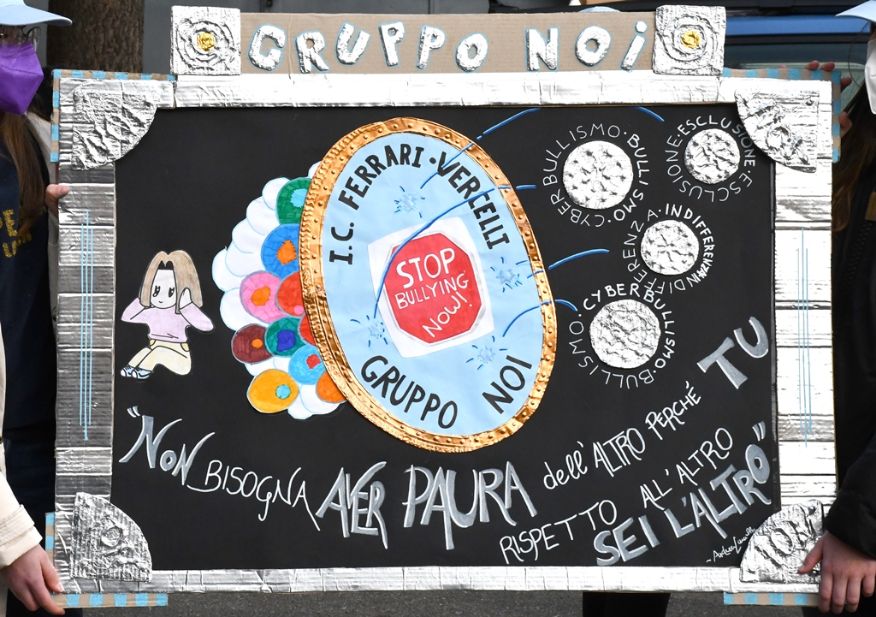 GRUPPO NOI
I.C. FERRARI · VERCELLI
STOP
BULLYING
NOW!
GRUPPO NOI
CYBERBULLISMO · BULLISMO · BULLISMO
ESCLUSIONE · ESCLUSIONE
INDIFFERENZA · INDIFFERENZA
BULLISMO · CYBERBULLISMO · BULLISMO
"NON BISOGNA AVER PAURA dell'ALTRO PERCHÉ TU
RISPETTO ALL'ALTRO
SEI L'ALTRO"